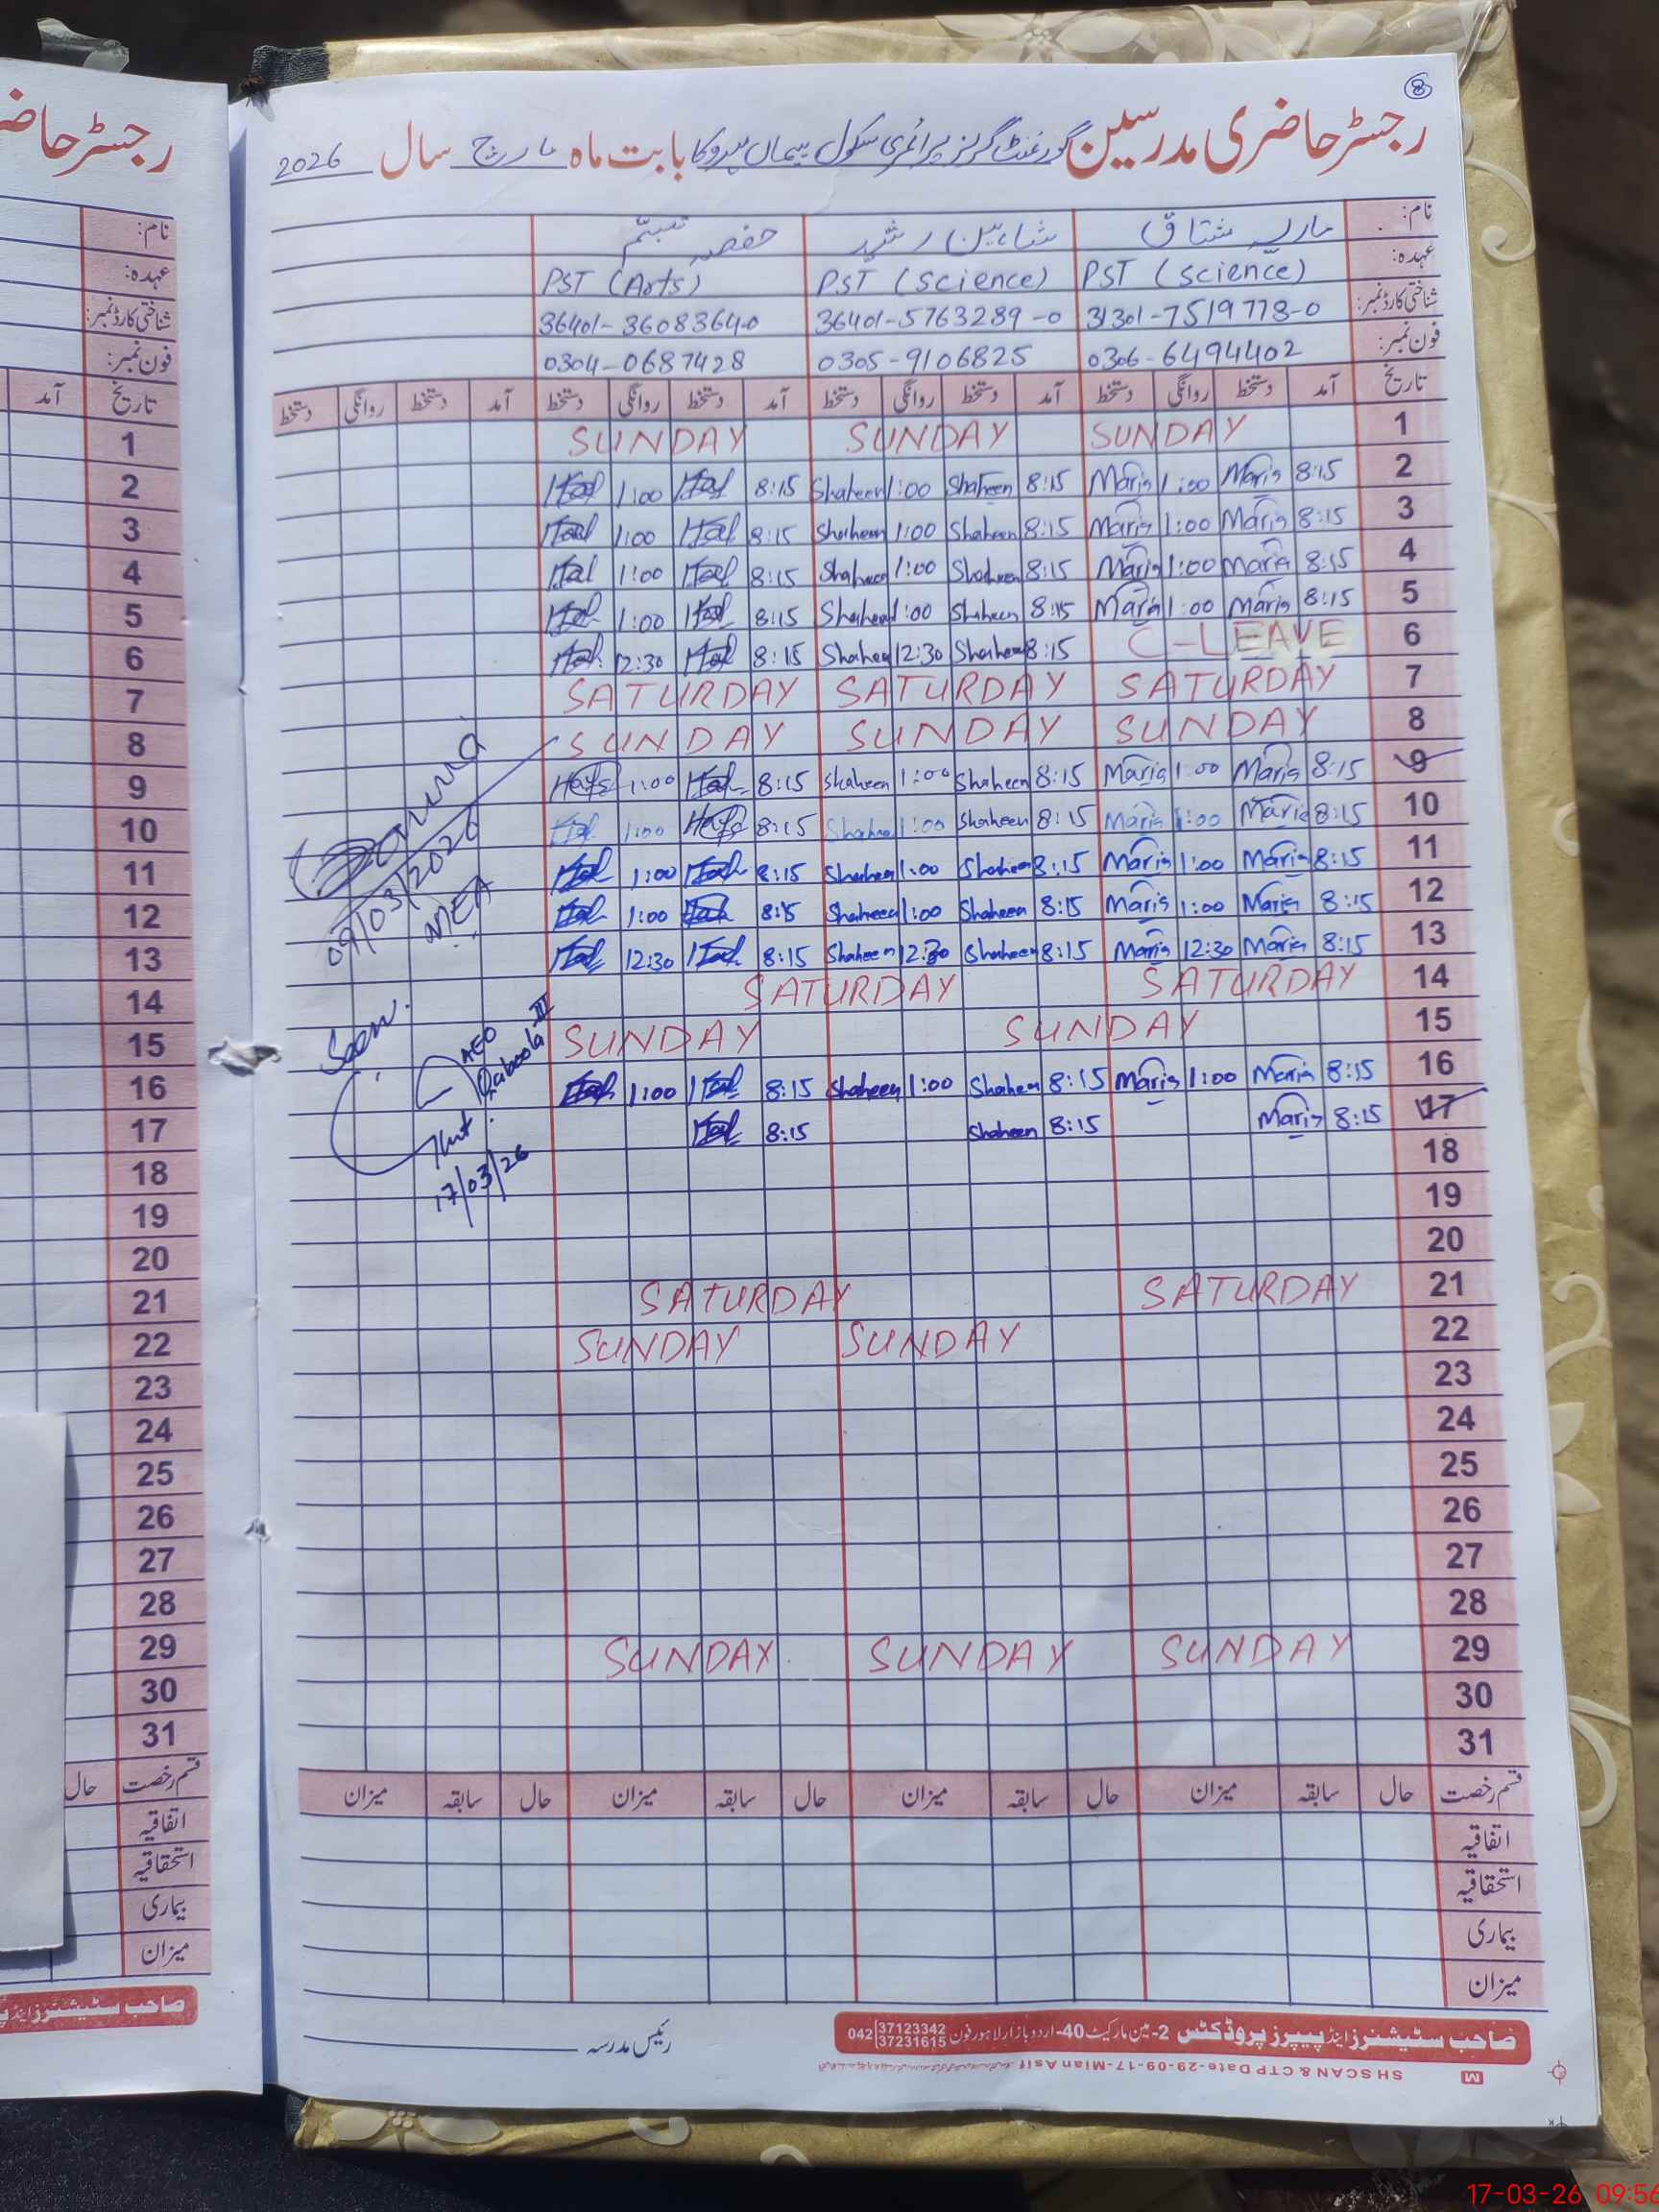 8
رجسٹر حاضری مدرسین گورنمنٹ گرلز پرائمری سکول بابت ماہ مارچ سال 2026
نام: ماریہ مشتاق شاہین رشید حفصہ تبسّم
عہدہ: PST (Science) PST (Science) PST (Arts)
شناختی کارڈ نمبر: 31301-7519778-0 36401-5763289-0 36401-3608364-0
فون نمبر: 0306-6494402 0305-9106825 0304-0687428
تاریخ آمد دستخط روانگی دستخط آمد دستخط روانگی دستخط آمد دستخط روانگی دستخط آمد دستخط روانگی دستخط
1 SUNDAY SUNDAY SUNDAY
2 8:15 Maria 1:00 Maria 8:15 Shaheen 1:00 Shaheen 8:15 1:00
3 8:15 Maria 1:00 Maria 8:15 Shaheen 1:00 Shaheen 8:15 1:00
4 8:15 Maria 1:00 Maria 8:15 Shaheen 1:00 Shaheen 8:15 1:00
5 8:15 Maria 1:00 Maria 8:15 Shaheen 1:00 Shaheen 8:15 1:00
6 C-LEAVE 8:15 Shaheen 12:30 Shaheen 8:15 12:30
7 SATURDAY SATURDAY SATURDAY
8 SUNDAY SUNDAY SUNDAY
9 8:15 Maria 1:00 Maria 8:15 Shaheen 1:00 Shaheen 8:15 1:00
10 8:15 Maria 1:00 Maria 8:15 Shaheen 1:00 Shaheen 8:15 1:00
11 8:15 Maria 1:00 Maria 8:15 Shaheen 1:00 Shaheen 8:15 1:00
12 8:15 Maria 1:00 Maria 8:15 Shaheen 1:00 Shaheen 8:15 1:00
13 8:15 Maria 12:30 Maria 8:15 Shaheen 12:30 Shaheen 8:15 12:30
09/03/2026
MEA
14 SATURDAY SATURDAY
15 SUNDAY SUNDAY
16 8:15 Maria 1:00 Maria 8:15 Shaheen 1:00 Shaheen 8:15 1:00
17 8:15 Maria 8:15 Shaheen 8:15
Seen.
AEO
Qaboola-III
17/03/26
18
19
20
21 SATURDAY SATURDAY
22 SUNDAY SUNDAY
23
24
25
26
27
28
29 SUNDAY SUNDAY SUNDAY
30
31
قسم رخصت حال سابقہ میزان حال سابقہ میزان حال سابقہ میزان
اتفاقیہ
استحقاقیہ
بیماری
میزان
رئیس مدرسہ
صاحب سٹیشنرز اینڈ پیپرز پروڈکٹس 2-مین مارکیٹ 40-اردو بازار لاہور فون 042 37123342 37231615
SH SCAN & CTP Date-29-09-17-Mian Asif
M
رجسٹر حاضری
نام:
عہدہ:
شناختی کارڈ نمبر:
فون نمبر:
تاریخ آمد
1
2
3
4
5
6
7
8
9
10
11
12
13
14
15
16
17
18
19
20
21
22
23
24
25
26
27
28
29
30
31
قسم رخصت حال
اتفاقیہ
استحقاقیہ
بیماری
میزان
صاحب سٹیشنرز اینڈ
17-03-26 09:56